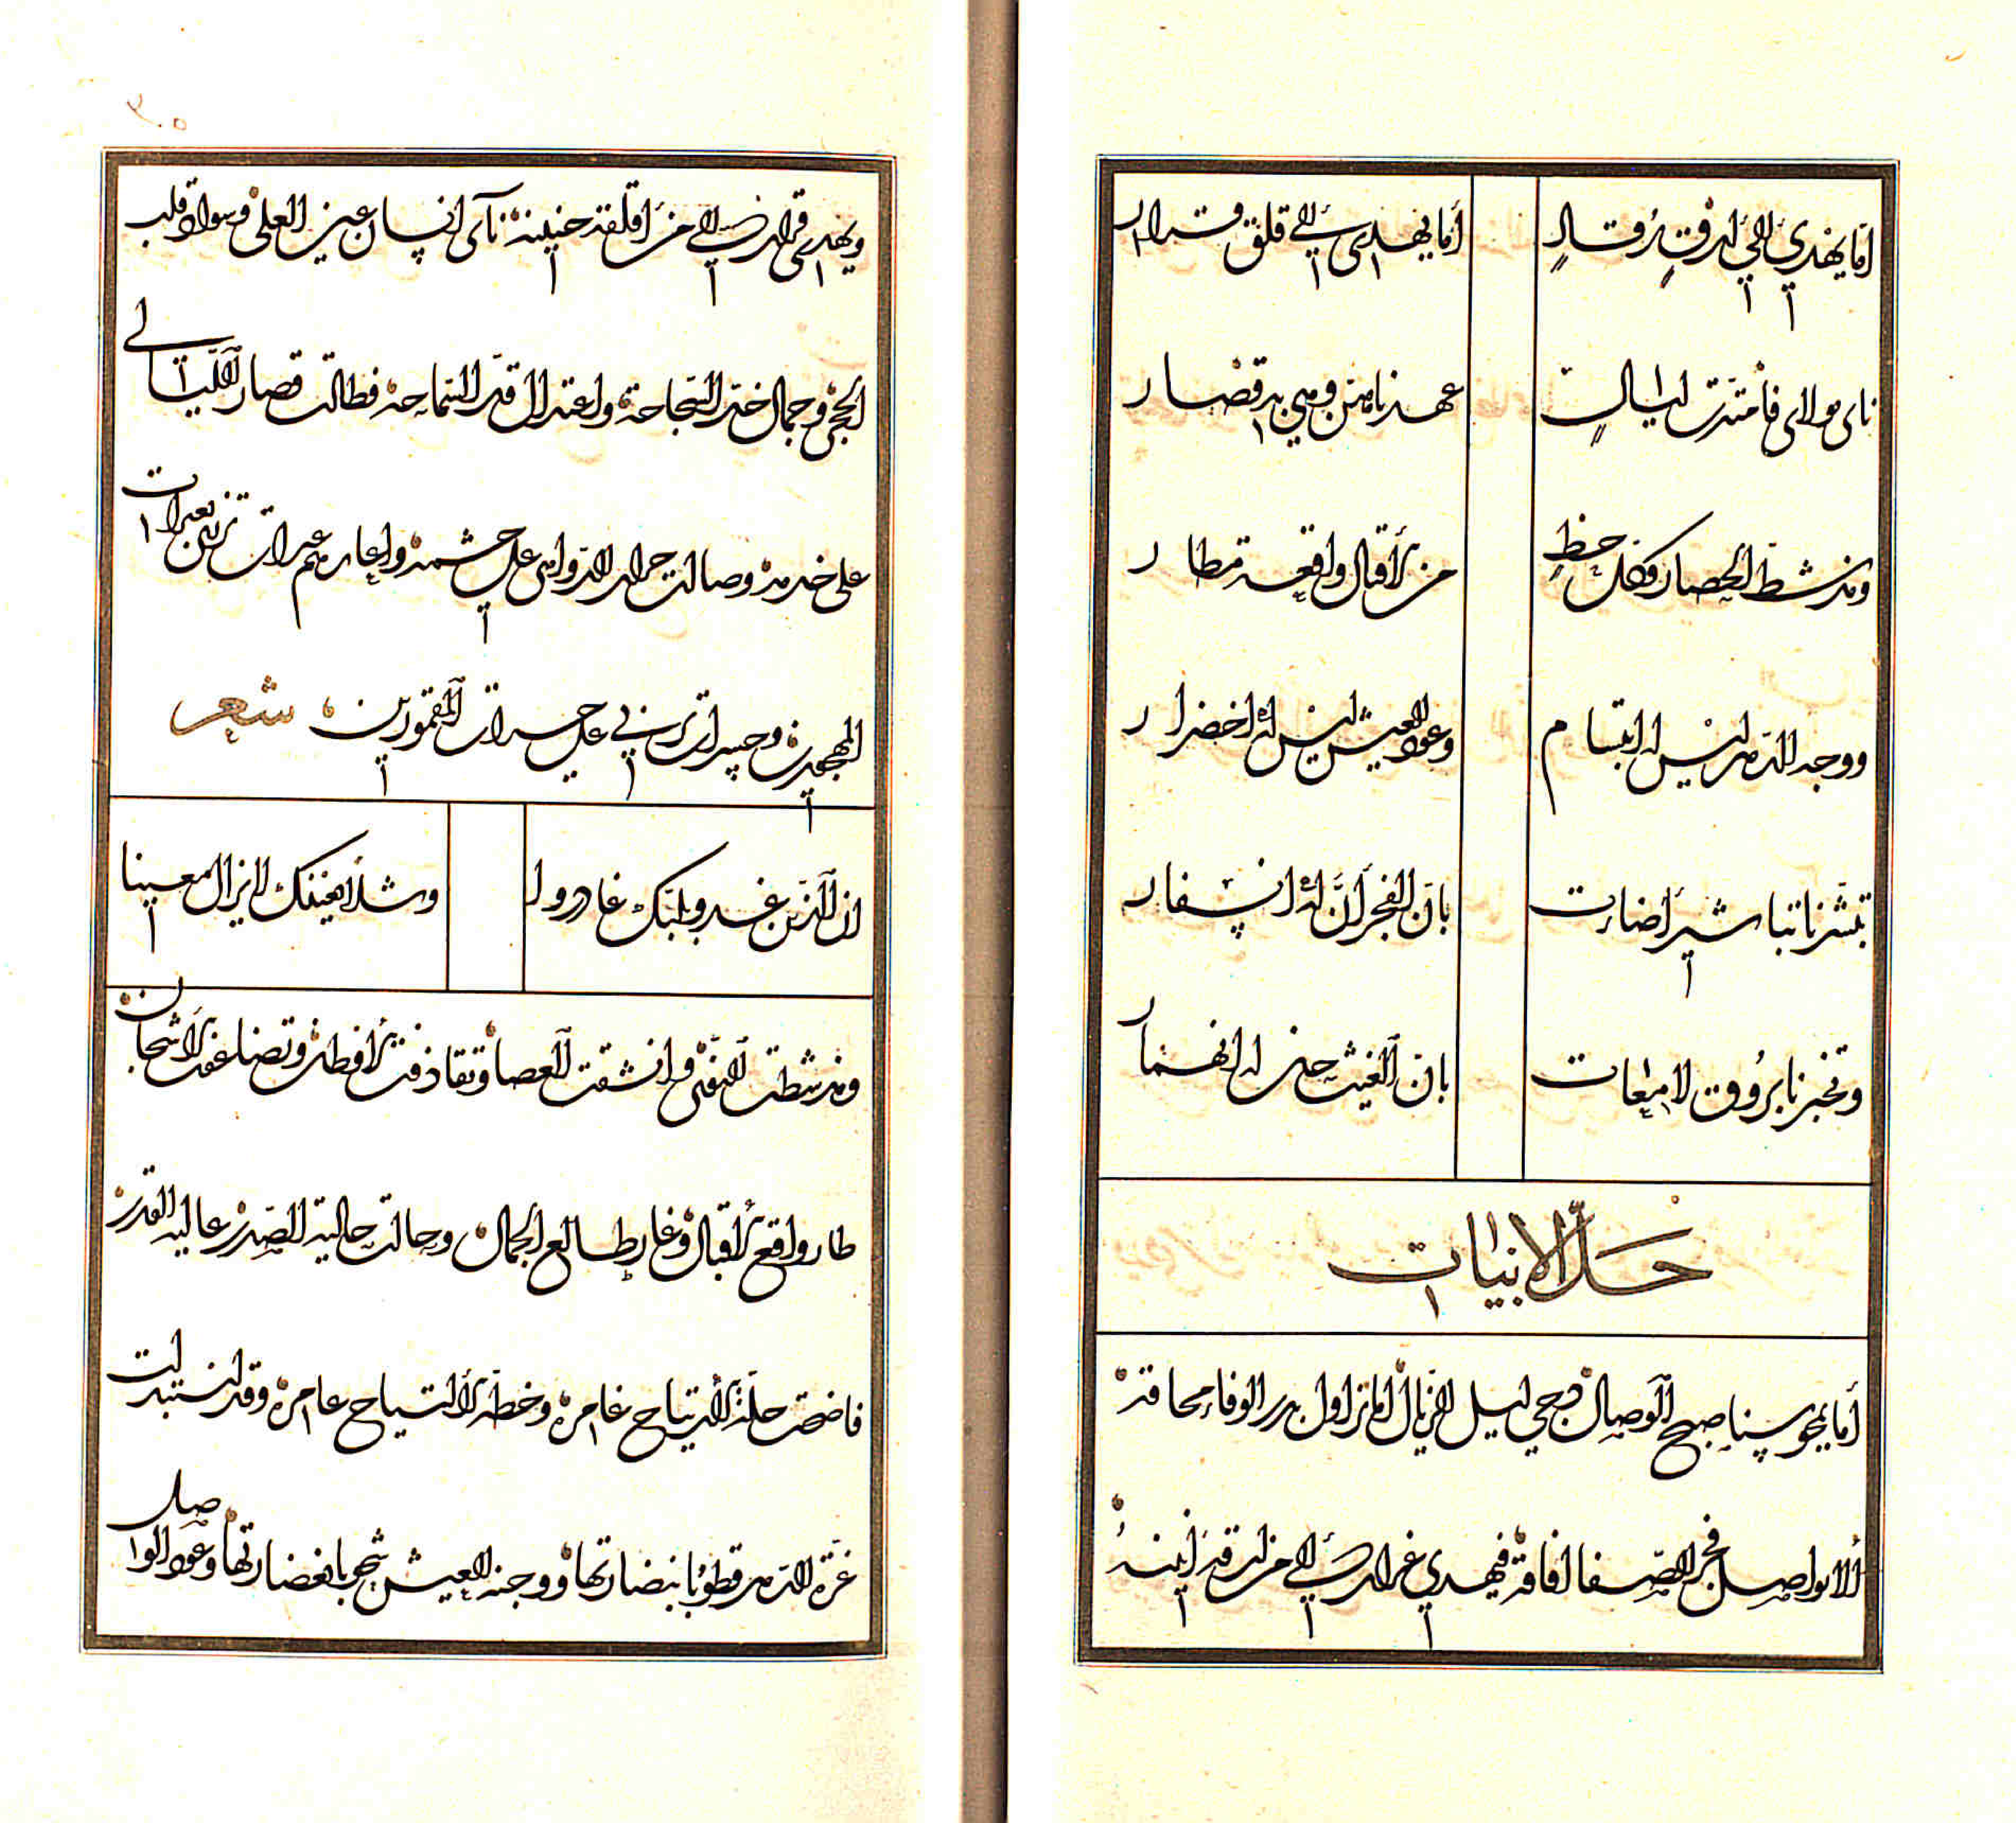 أما يهدى إلى أرق رقاد أما يهدى إلى قلق قرار
نأى مولاى فامتدت ليال عهدناهن وهي به قصار
ومذ شط الحصار فكل حظ من الأقبال واقعه قطار
ووجه الدهر ليس له ابتسام وعود العيش ليس له اخضرار
تبشرنا تباشير أضاءت بان الفجر آن له انسفار
وتخبرنا بروق لامعات بان الغيث حان له انهمار
حل الابيات
أما يمحو سنا صبح الوصال دجى ليل الزيال أما زاول بدر الوفاء محاقه
ألا يواصل فجر الصفا افاقه فيهدي غرار إلى من ارقه أنينه
ويهدى قرار إلى من أقلقه حنينه نأى انسان عين العلى وسواد قلب
الحجى وجمال خد النجاحة واعتدال قد السماحة فطالت قصار الليالى
على خدمه وصالت على حشمه وإعارهم عبرات تزرى بعبرات
المهجورين وحسرات تربي على حسرات المقمورين شعر
ان الذين غدوا بلبك غادروا وشلا بعينك لا يزال معينا
ومذ شطت النوى وانشقت العصا وتقاذفت الأقطار وتضاعفت الأشجان
طار واقع الأقبال وغار طالع الجمال وحالت حالية الصدر عالية القدر
فاضحت حلة الأرتياح غامرة وخطة الألتياح عامرة وقد استبدلت
غرة الدهر قطوبا بنضارتها ووجنة العيش شحوبا بغضارتها وعود الواصل
٣٠٥